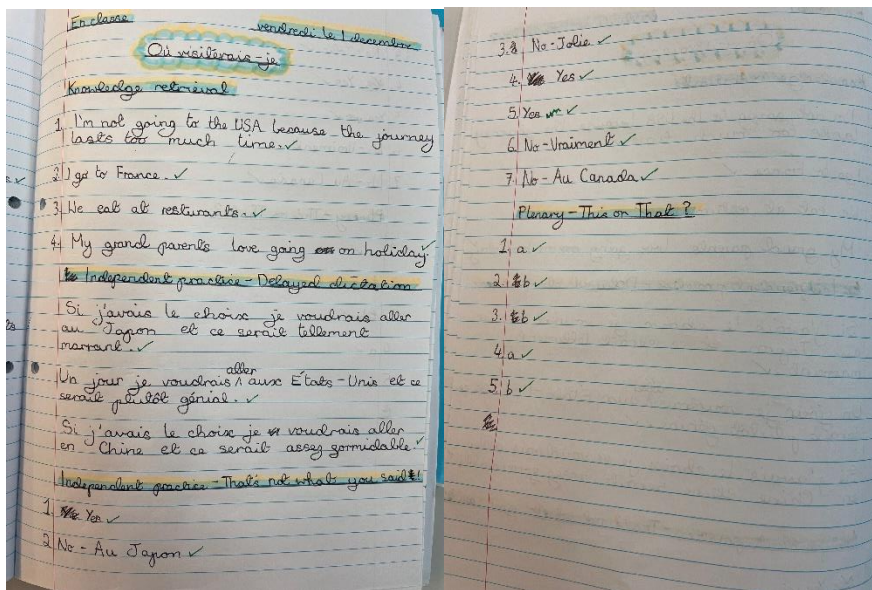 En classe
vendredi le 1 decembre
Où visiterais-je
Knowledge retrieval
1. I'm not going to the USA because the journey
lasts too much time. ✓
2 I go to France. ✓
3. We eat at resturants. ✓
4. My grand parents love going on holiday. ✓
Independent practice - Delayed dictation
Si j'avais le choix je voudrais aller
au Japon et ce serait tellement
marrant. ✓
aller
Un jour je voudrais ^ aux États-Unis et ce
serait plutôt génial. ✓
Si j'avais le choix je voudrais aller
en Chine et ce serait assez formidable. ✓
Independent practice - That's not what you said!
1. Yes ✓
2 No - Au Japon ✓
3. No - Jolie ✓
4. Yes ✓
5. Yes ✓
6. No - Vraiment ✓
7. No - Au Canada ✓
Plenary - This or That?
1. a ✓
2. b ✓
3. b ✓
4. a ✓
5. b ✓